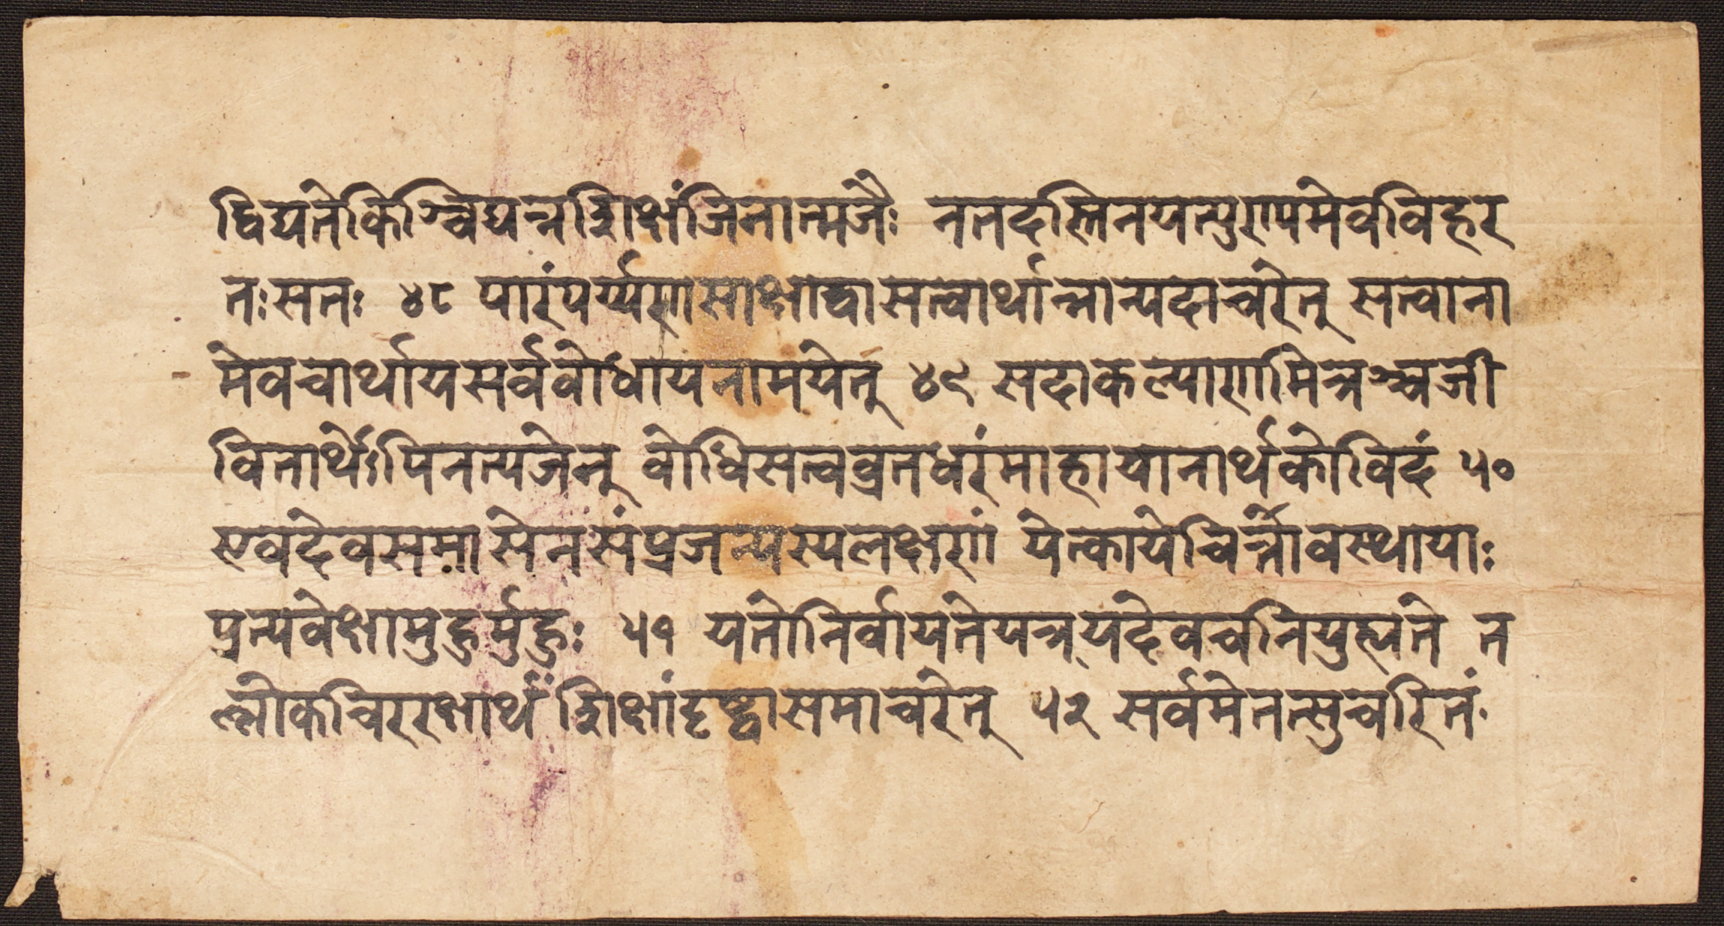 द्विद्यतेकिञ्चिद्यन्नशिक्षंजिनात्मजैः नतदस्तिनयत्पुण्यमेवविहर
तःसतः ४८ पारंपर्य्येणसाक्षाद्वासत्वार्थान्नान्यदाचरेत् सत्वाना
मेवचार्थायसर्वबोधायनामयेत् ४९ सदाकल्याणमित्रञ्चजी
वितार्थेपिनत्यजेत् बोधिसत्वव्रतधरंमाहायानार्थकोविदं ५०
एवदेवसमासेनसंप्रजन्यस्यलक्षणं येत्कायेचित्तावस्थायाः
प्रत्यवेक्षामुहुर्मुहुः ५१ यतोनिर्वायतेयत्रयदेवचनियुह्यते त
ल्लोकचिररक्षार्थं शिक्षांदृष्ट्वासमाचरेत् ५२ सर्वमेतत्सुचरितं